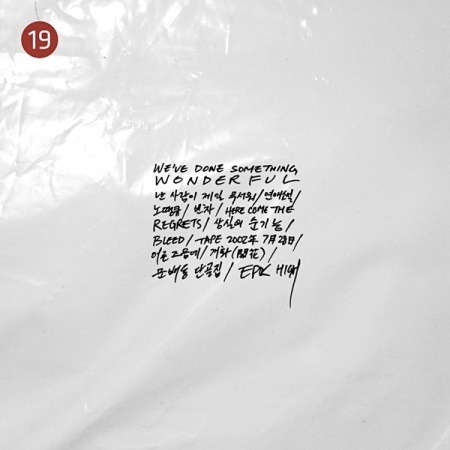 19
WE'VE DONE SOMETHING
WONDERFUL
난 사람이 제일 무서워 / 연애소설 /
노땡큐 / 빈차 / HERE COME THE
REGRETS / 상실의 순기능 /
BLEED / TAPE 2002年 7月 28日 /
어른 즈음에 / 개화 (開花) /
문배동 단골집 / EPIK HIGH